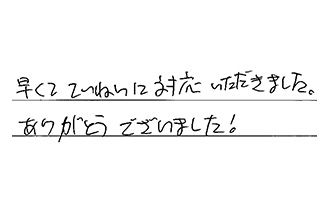 早くて ていねいに 対応 いただきました。
ありがとう ございました!